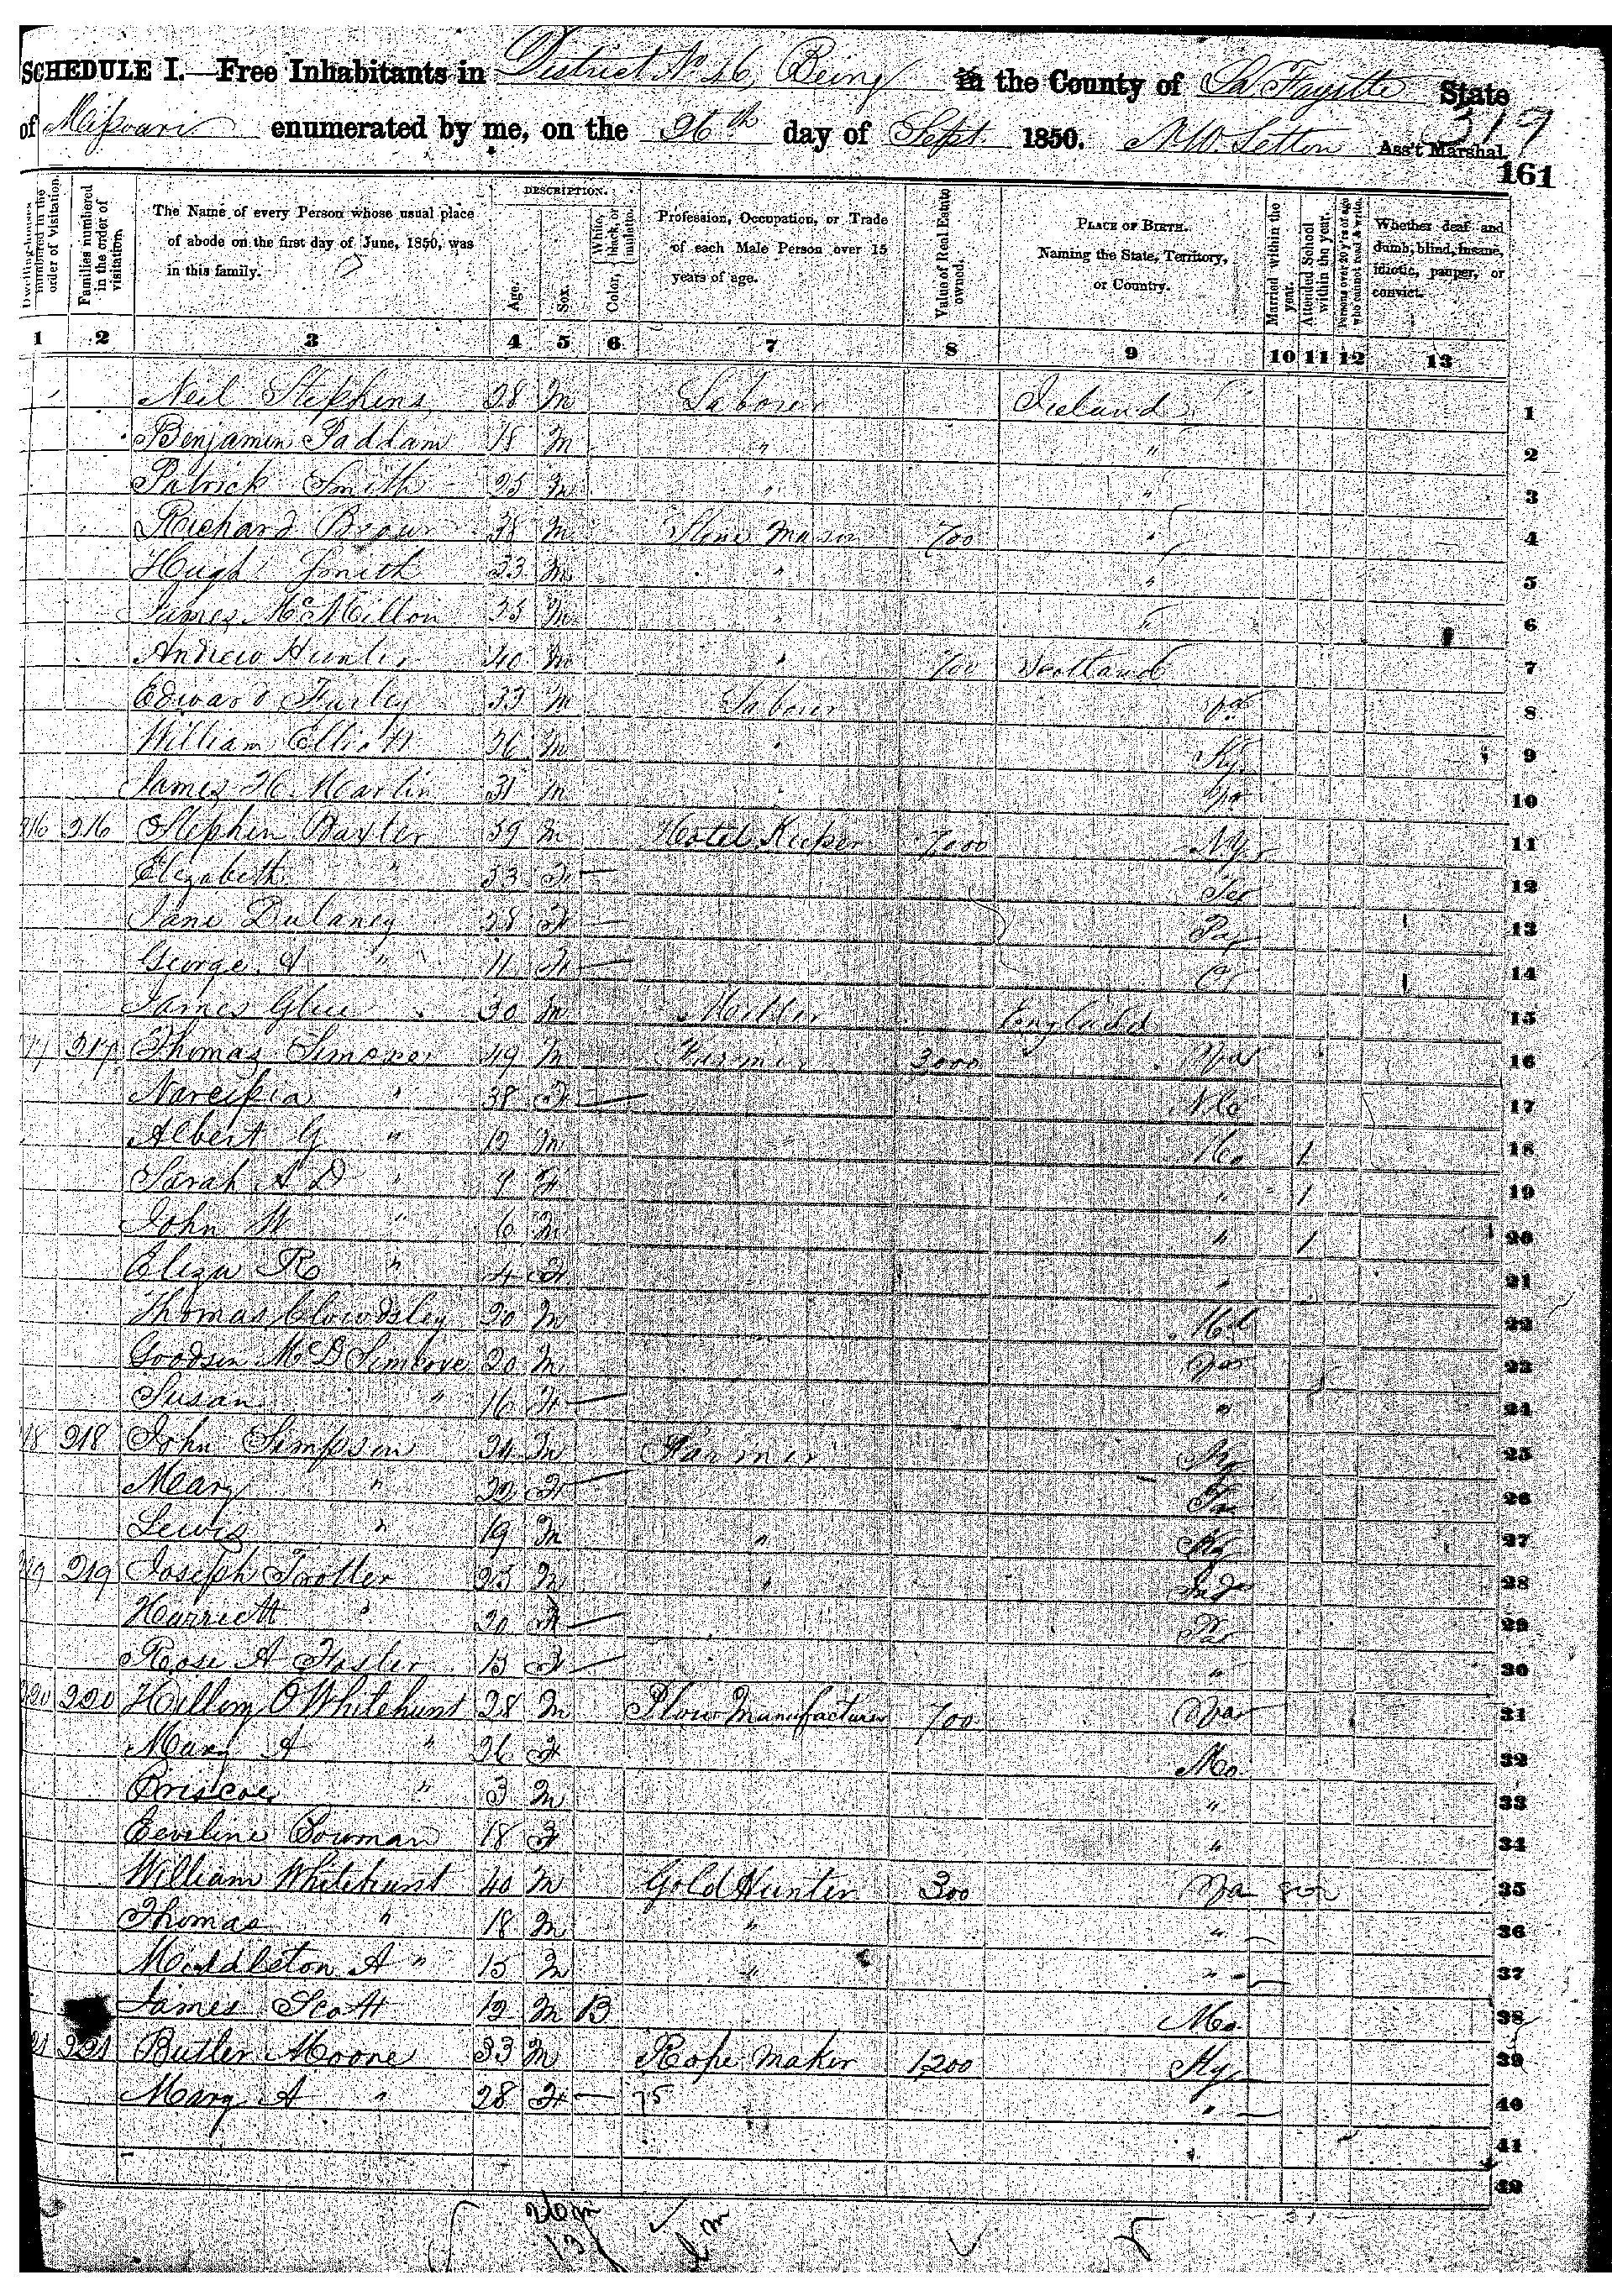 SCHEDULE I.—Free Inhabitants in District No 26, Being in the County of La Fayette State
of Missouri enumerated by me, on the 26th day of Sept. 1850. Ass't Marshal.
319
161
DESCRIPTION.
Dwelling-houses numbered in the order of visitation.
Families numbered in the order of visitation.
The Name of every Person whose usual place of abode on the first day of June, 1850, was in this family.
Age.
Sex.
Color, White, black, or mulatto.
Profession, Occupation, or Trade of each Male Person over 15 years of age.
Value of Real Estate owned.
PLACE OF BIRTH. Naming the State, Territory, or Country.
Married within the year.
Attended School within the year.
Persons over 20 y'rs of age who cannot read & write.
Whether deaf and dumb, blind, insane, idiotic, pauper, or convict.
1 2 3 4 5 6 7 8 9 10 11 12 13
Neil Stephens 28 M Laborer Ireland 1
Benjamin 18 M " " 2
Patrick Smith 25 M " " 3
Richard Brown 38 M Stone Mason 700 " 4
Hugh Smith 33 M " " 5
James McMillon 35 M " " 6
Andrew Hunter 40 M " 700 Scotland 7
Edward Furley 33 M Laborer Va 8
William Elliott 26 M " Ky. 9
James H. Martin 31 M " 10
216 216 Stephen Baxter 39 M Hotel Keeper 7000 N.Y. 11
Elizabeth " 33 F 12
Jane Dulaney 28 F Pa 13
George A " 11 14
James Glue 30 M England 15
217 Thomas 49 M Farmer 3000 Va 16
Narcissa " 38 F 17
Albert G " 12 M Mo 18
Sarah A D " 9 F " 1 19
John W " 6 M " 1 20
Eliza R " 4 F " 21
Thomas Clowdsley 20 M Md 22
Goodson McD 20 M Va 23
Susan " 16 F " 24
218 John Simpson 24 M Farmer Ky 25
Mary " 22 F 26
Lewis " 19 M " Ky 27
219 219 Joseph Trotter 25 M " Inda 28
Harriett " 20 F 29
Rose A Foster 13 F " 30
220 220 O Whitehurst 28 M Plow Manufacturer 700 Va 31
Mary A " 26 F Mo. 32
Briscoe " 3 M " 33
Eeveline Bowman 18 F " 34
William Whitehurst 40 M Gold Hunter 300 Va 35
Thomas " 18 M " " 36
Middleton A " 15 M " " 37
James Scott 12 M B Mo. 38
21 221 Butler Moore 33 M Rope Maker 1200 Ky 39
Mary A " 28 F 75 " 40
41
42